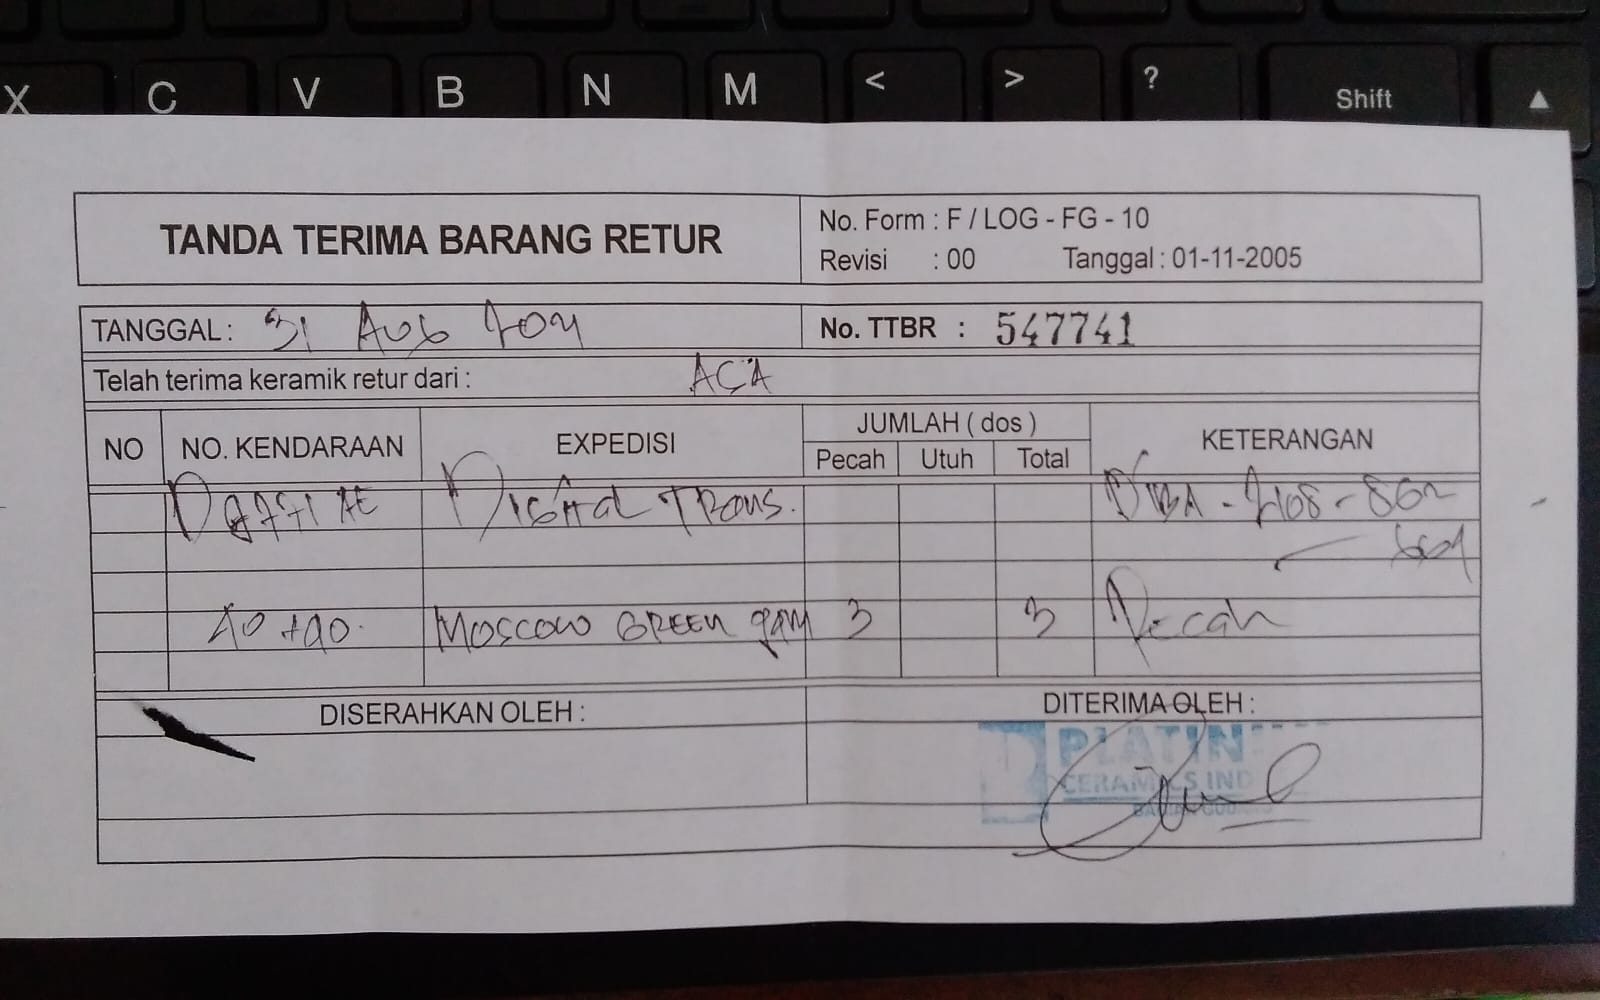 X C V B N M < > ? Shift ▲
TANDA TERIMA BARANG RETUR
No. Form : F / LOG - FG - 10
Revisi : 00 Tanggal : 01-11-2005
TANGGAL : 31
No. TTBR : 547741
Telah terima keramik retur dari : ACA
NO NO. KENDARAAN EXPEDISI JUMLAH ( dos ) KETERANGAN
Pecah Utuh Total
Digital Trans.
MOSCOW GREEN 3 3 Pecah
DISERAHKAN OLEH : DITERIMA OLEH :
PLATIN
CERAMICS IND